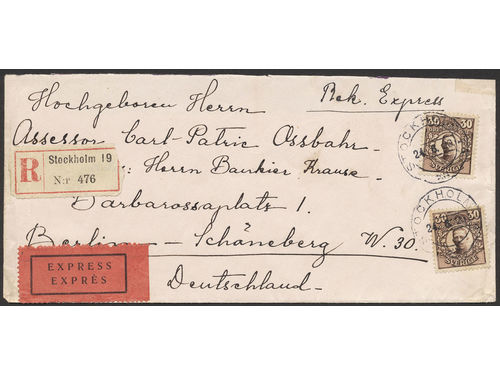 Hochgeboren Herrn
Rek. Express
Assessor Carl-Patric Ossbahr
R
Stockholm 19
N:r 476
: Herrn Bankier Krause
Barbarossaplatz 1.
Berlin — Schöneberg W. 30.
Deutschland
EXPRESS
EXPRÈS
STOCKHOLM
30 30
SVERIGE
STOCKHOLM
30 30
SVERIGE